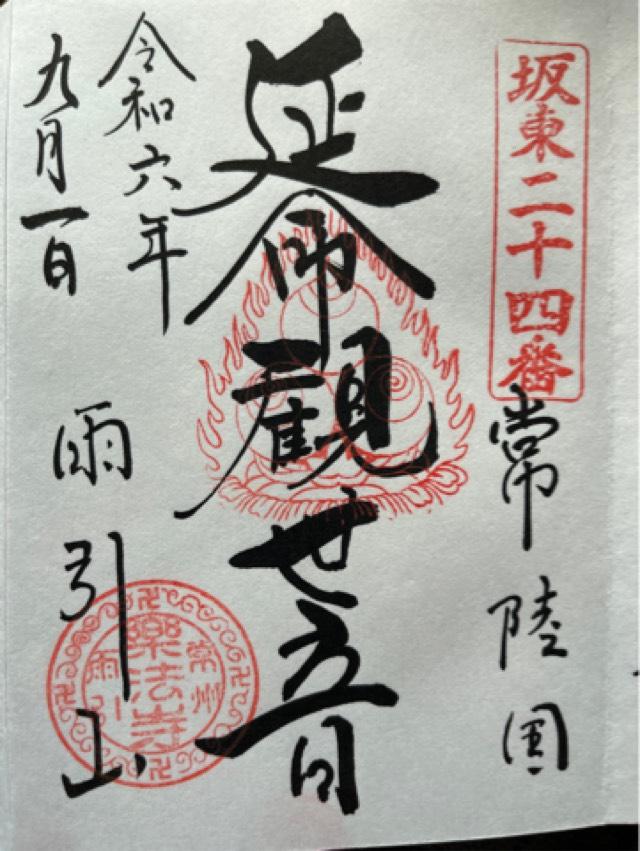 坂東二十四番
常陸国
延命観世音
令和六年
九月一日
雨引山
常州
樂法寺
雨引